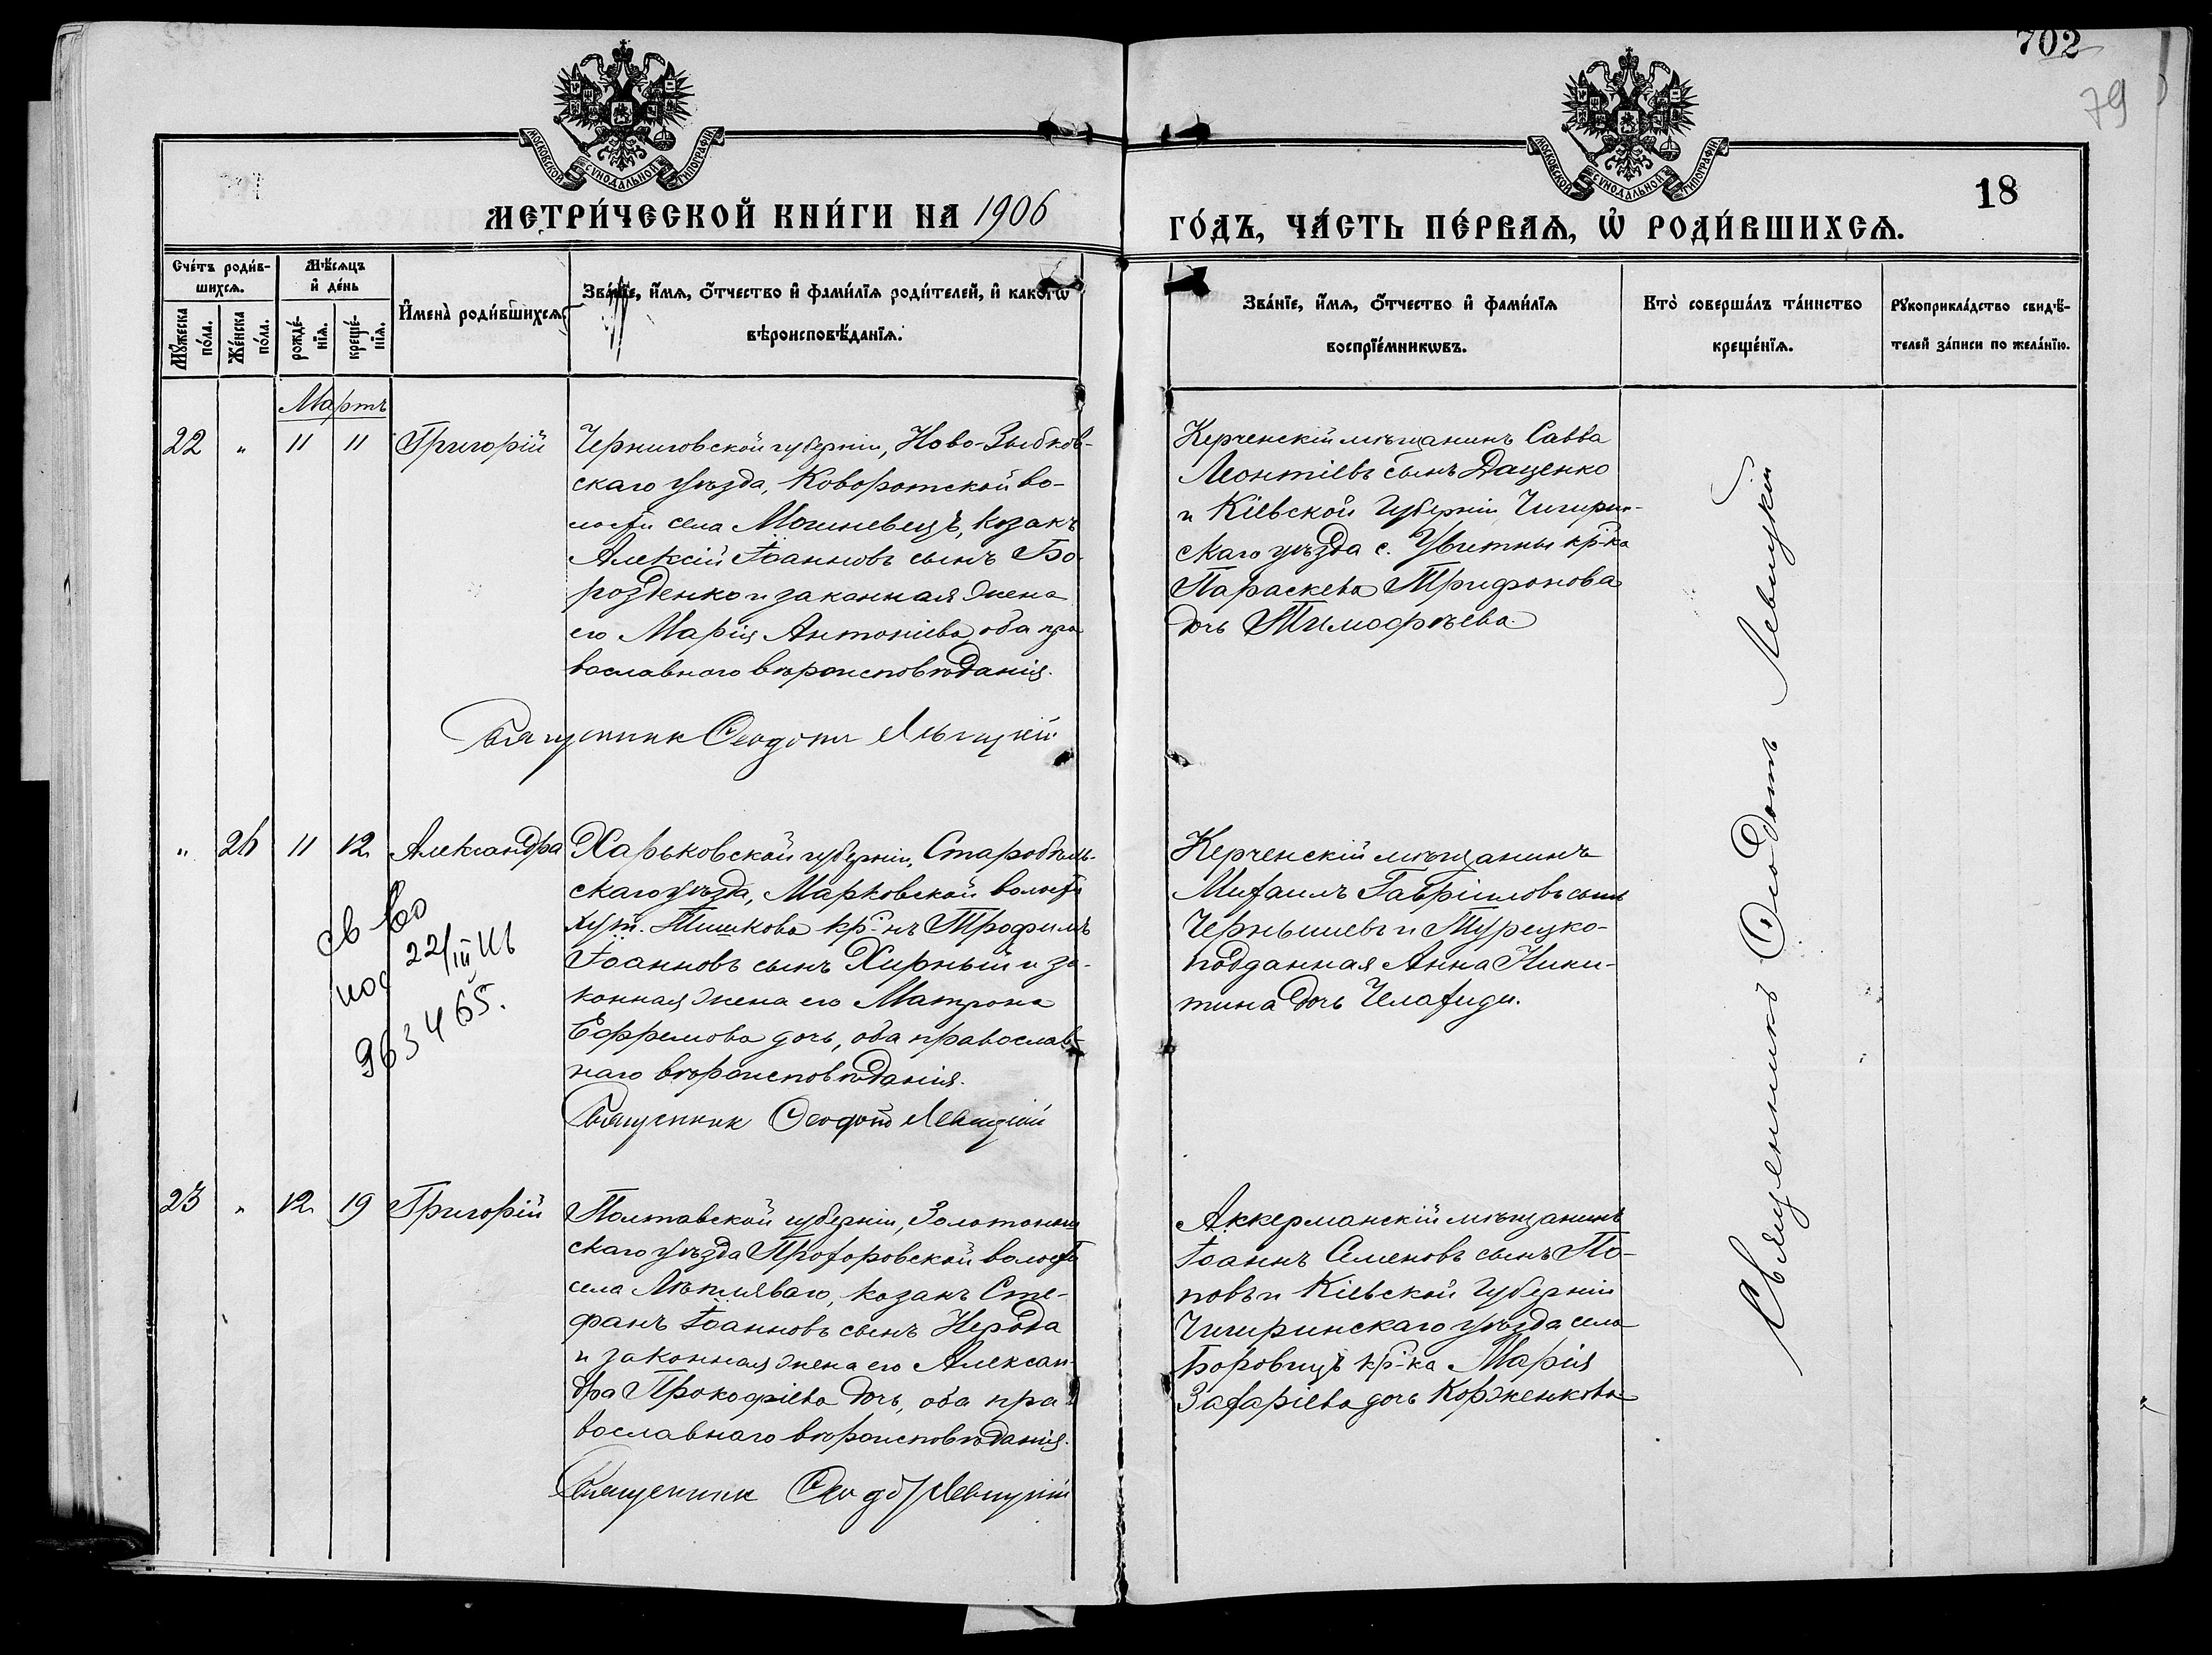 702
79
МОСКОВСКОЙ СУНОДАЛЬНОЙ ТИПОГРАФІИ
МОСКОВСКОЙ СУНОДАЛЬНОЙ ТИПОГРАФІИ
18
МЕТРИ́ЧЕСКОЙ КНИ́ГИ НА 1906
ГО́ДЪ, ЧА́СТЬ ПЕ́РВАѦ, Ѡ҆ РОДИ́ВШИХСѦ.
Сче́тъ роди́в-
шихсѧ.
Мѣ́сѧцъ
и҆ де́нь
Мꙋ́жеска
по́ла.
Же́нска
по́ла.
рожде́-
нїѧ.
креще́-
нїѧ.
И҆мена̀ роди́вшихсѧ.
Зва́нїе, и҆́мѧ, ѻ҆́тчество и҆ фами́лїѧ роди́телей, и҆ како́гѡ
вѣроисповѣ́данїѧ.
Зва́нїе, и҆́мѧ, ѻ҆́тчество и҆ фами́лїѧ
воспрїе́мникѡвъ.
Кто̀ соверша́лъ та́инство
креще́нїѧ.
Рꙋкоприкла́дство свидѣ́-
телей за́писи по жела́нїю.
Мартъ
22 " 11 11 Григорій
Черниговской губерніи, Ново-Зыбков-
скаго уѣзда, Коворотской во-
лости села Могиневецъ, козакъ
Алексій Іоанновъ сынъ Бо-
розденко и законная жена
его Марія Антоніева, оба пра
вославнаго вѣроисповѣданія.
Священник Ѳеодотъ Левицкій
Керченскій мѣщанинъ Савва
Леонтіевъ сынъ Даценко
и Кіевской Губерніи Чигирин-
скаго уѣзда с. Убитны кр-ка
Параскева Трифонова
дочь Тимофѣева.
" 26 11 12 Александра
Харьковской губерніи, Старобѣль-
скаго уѣзда, Марковской волости
хут. Тишкова кр-нъ Трофимъ
Іоанновъ сынъ Хирный и за-
конная жена его Матрона
Ефремова дочь, оба православ-
наго вѣроисповѣданія.
Священник Ѳеодотъ Левицкій
св во
22/III
963465.
Керченскій мѣщанинъ
Михаилъ Гавріиловъ сынъ
Чернышевъ и Турецко-
подданная Анна Ники-
тина дочь Челахиди.
23 " 12 19 Григорій
Полтавской губерніи, Золотонош
скаго уѣзда Прохоровской волости
села Лѣпляваго, козакъ Сте-
фанъ Іоанновъ сынъ Нерода
и законная жена его Алексан-
дра Прокофіева дочь, оба пра-
вославнаго вѣроисповѣданія.
Священник Ѳеодот Левицкій
Аккерманскій мѣщанинъ
Іоаннъ Семеновъ сынъ По-
повъ и Кіевской Губерніи
Чигиринскаго уѣзда села
Боровицъ кр-ка Марія
Захаріева дочь Корженкова
Священникъ Ѳеодотъ Левицкій